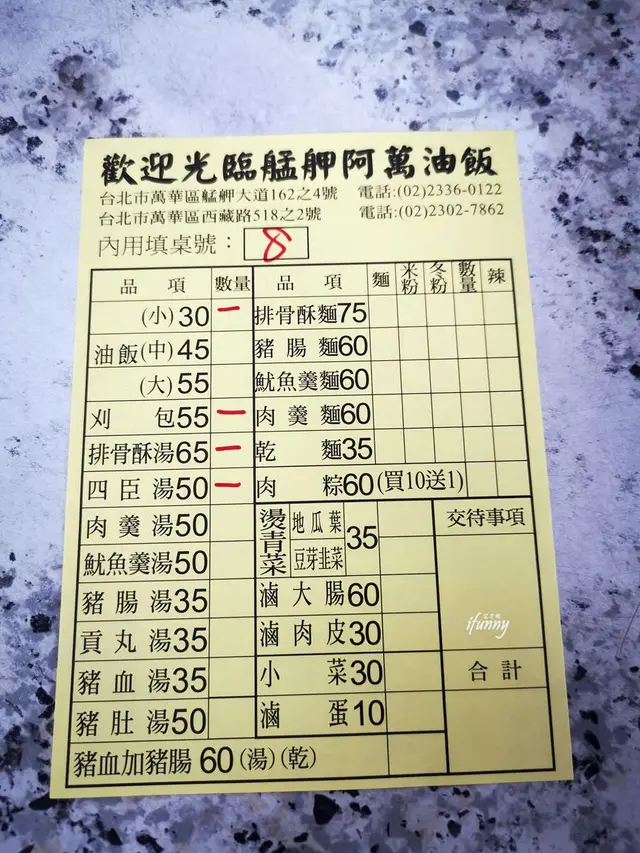 歡迎光臨艋舺阿萬油飯
台北市萬華區艋舺大道162之4號 電話:(02)2336-0122
台北市萬華區西藏路518之2號 電話:(02)2302-7862
內用填桌號: 8
品項 數量 品項 麵 米粉 冬粉 數量 辣
(小)30 一 排骨酥麵75
油飯(中)45 豬腸麵60
(大)55 魷魚羹麵60
刈包55 一 肉羹麵60
排骨酥湯65 一 乾麵35
四臣湯50 一 肉粽60(買10送1)
肉羹湯50 燙青菜 地瓜葉 35 交待事項
魷魚羹湯50 豆芽韭菜
豬腸湯35 滷大腸60
貢丸湯35 滷肉皮30 ifunny
豬血湯35 小菜30 合計
豬肚湯50 滷蛋10
豬血加豬腸 60(湯)(乾)